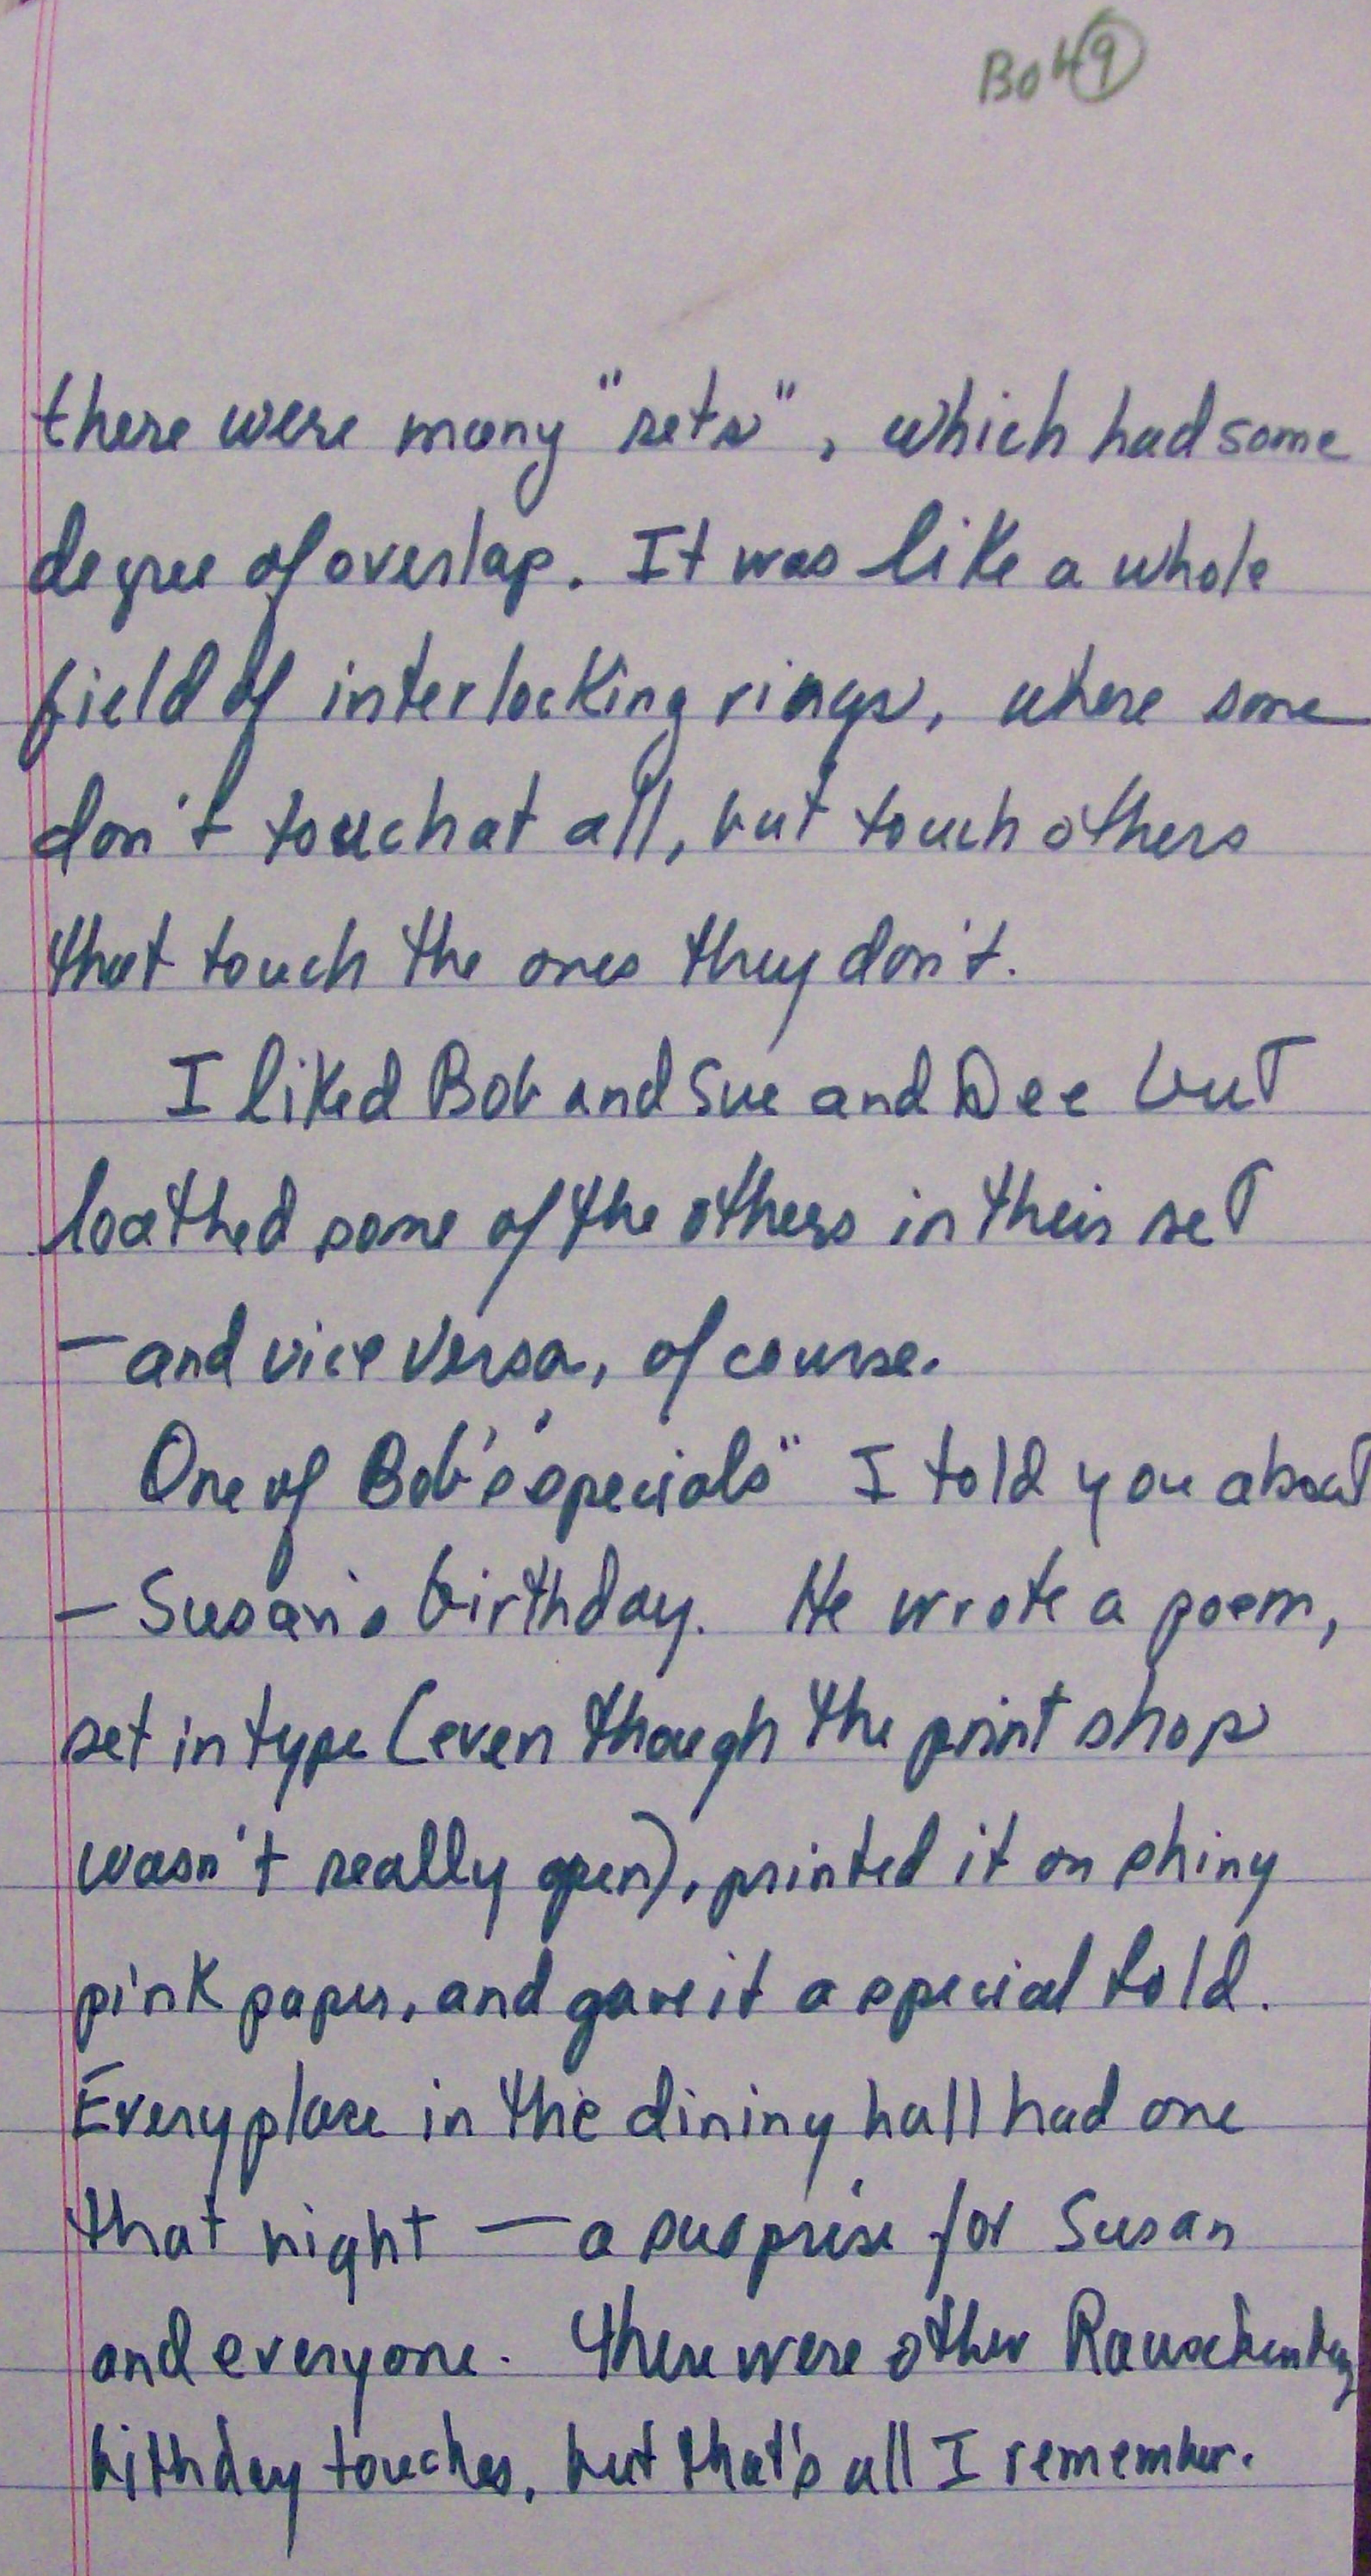 Bob 9
there were many "sets", which had some
degree of overlap. It was like a whole
field of interlocking rings, where some
don't touch at all, but touch others
that touch the ones they don't.
I liked Bob and Sue and Dee but
loathed some of the others in their set
— and vice versa, of course.
One of Bob's "specials" I told you about
— Susan's birthday. He wrote a poem,
set in type (even though the print shop
wasn't really open), printed it on shiny
pink paper, and gave it a special fold.
Every place in the dining hall had one
that night — a surprise for Susan
and everyone. There were other Rauschenberg
bithday touches, but that's all I remember.